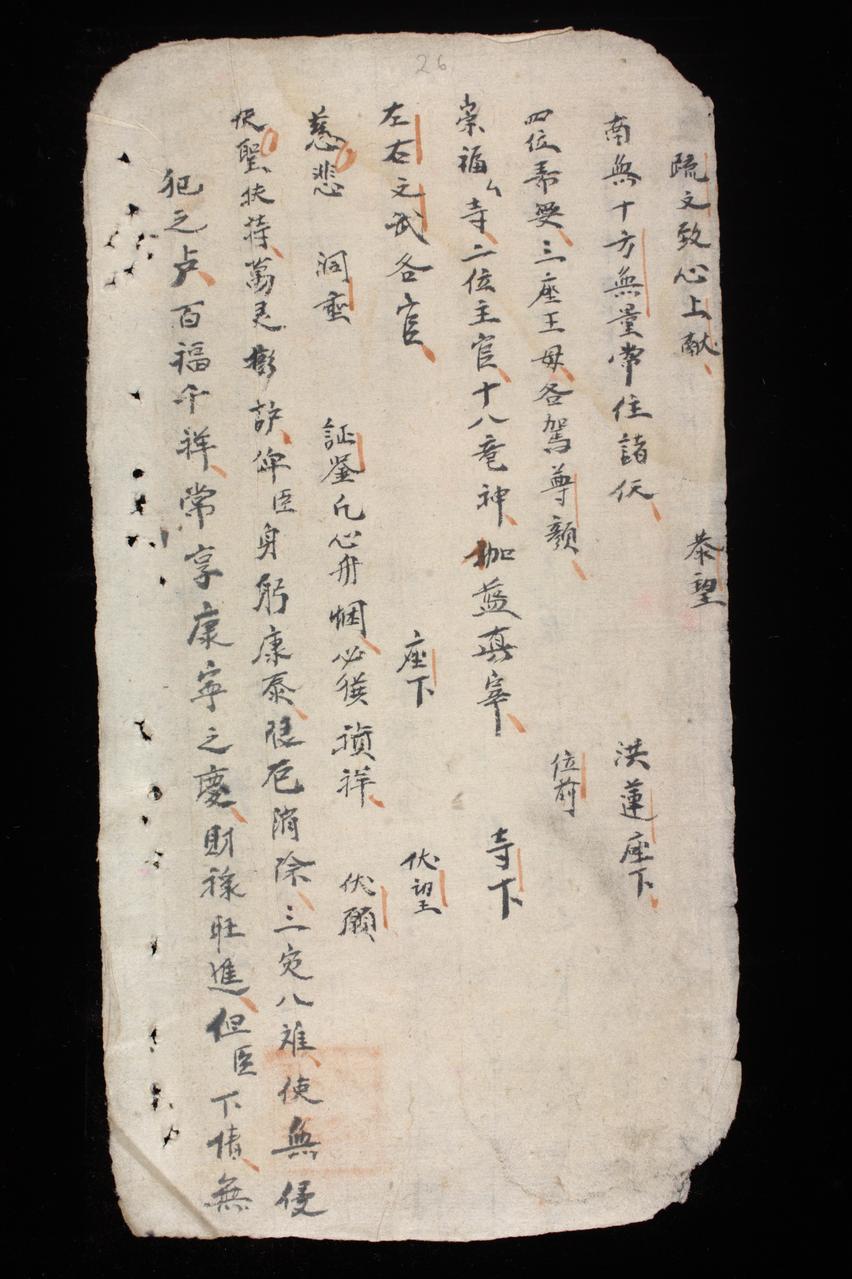 疏文致心上献 恭望
南無十方無量常住諸仸 洪蓮座下
四位素㚢三座王母各駕尊顏 位前
崇福寺二位主官十八竜神伽藍真宰 寺下
左右文武各官 座下 伏望
慈悲 洞垂 証鑒凢心丹悃必獲禎祥 伏願
伏聖扶持萬灵擁護俾臣身躬康泰限厄消除三灾八难使無侵
犯之虍百福千祥常享康寧之慶財祿旺進但臣下情無
26